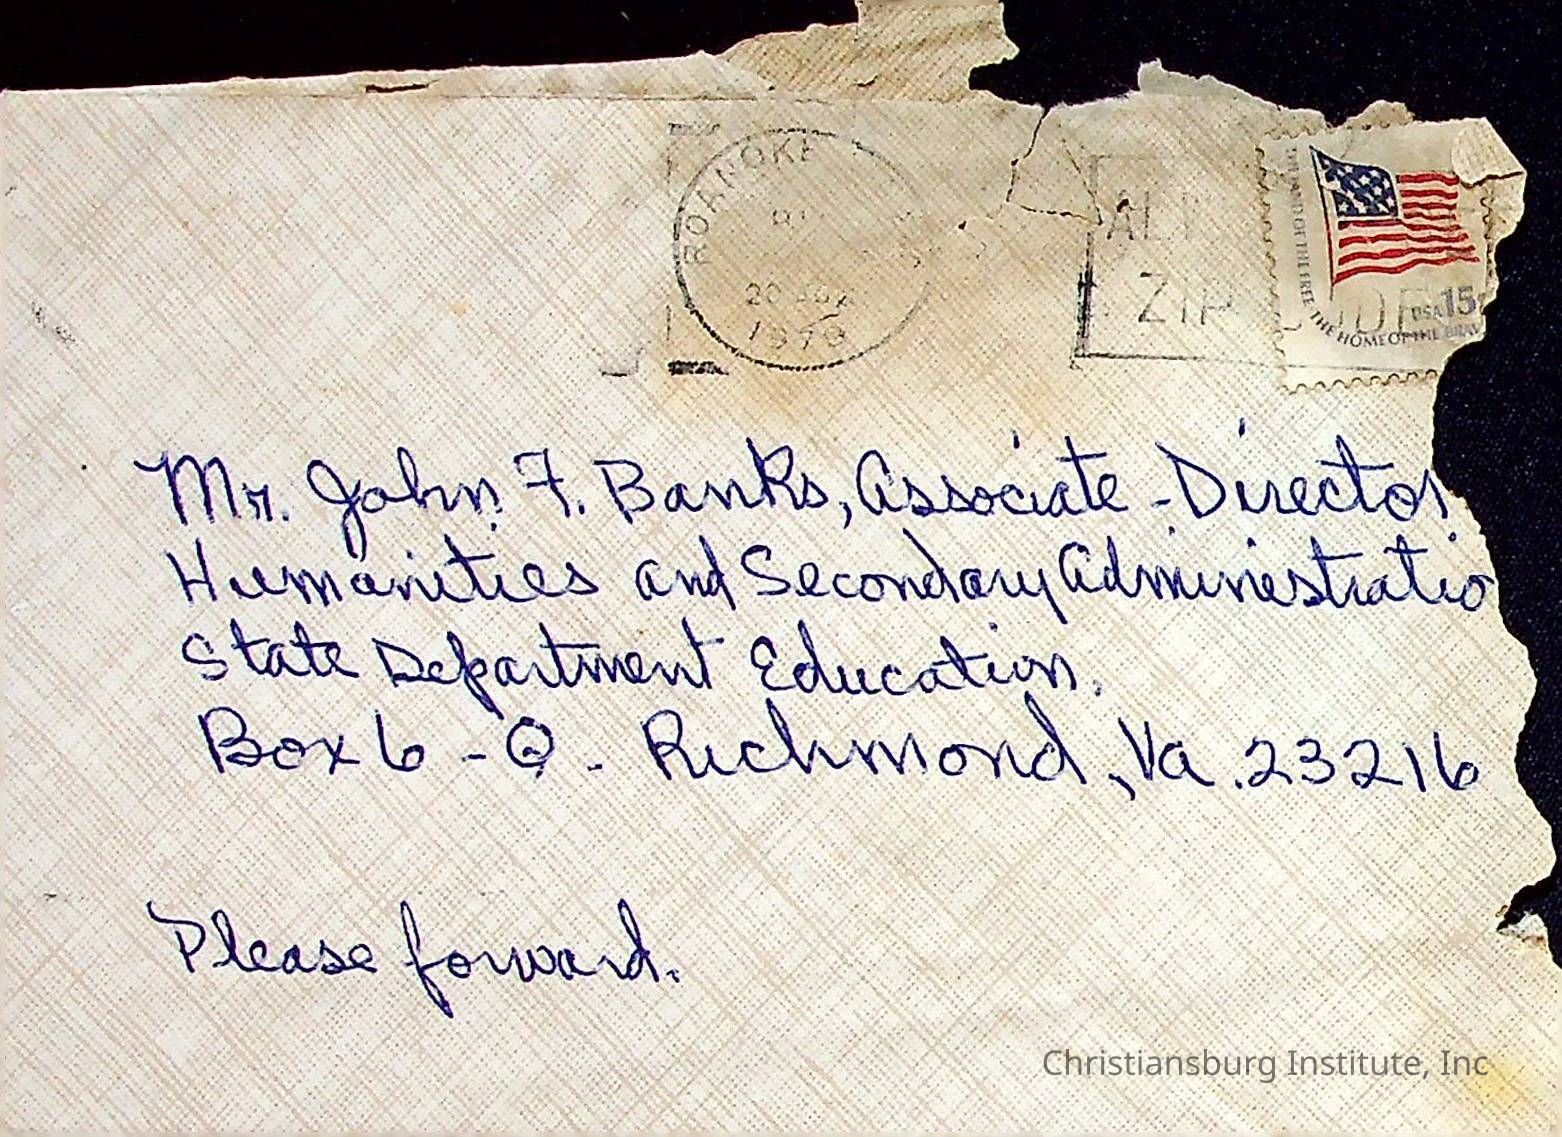 ROANOKE
20
1979
ALL
ZIP CODE
THE LAND OF THE FREE THE HOME OF THE BRAVE
USA 15
Mr. John F. Banks, Associate-Director
Humanities and Secondary Administratio
State Department Education.
Box 6-Q. Richmond, Va. 23216
Please forward.
Christiansburg Institute, Inc